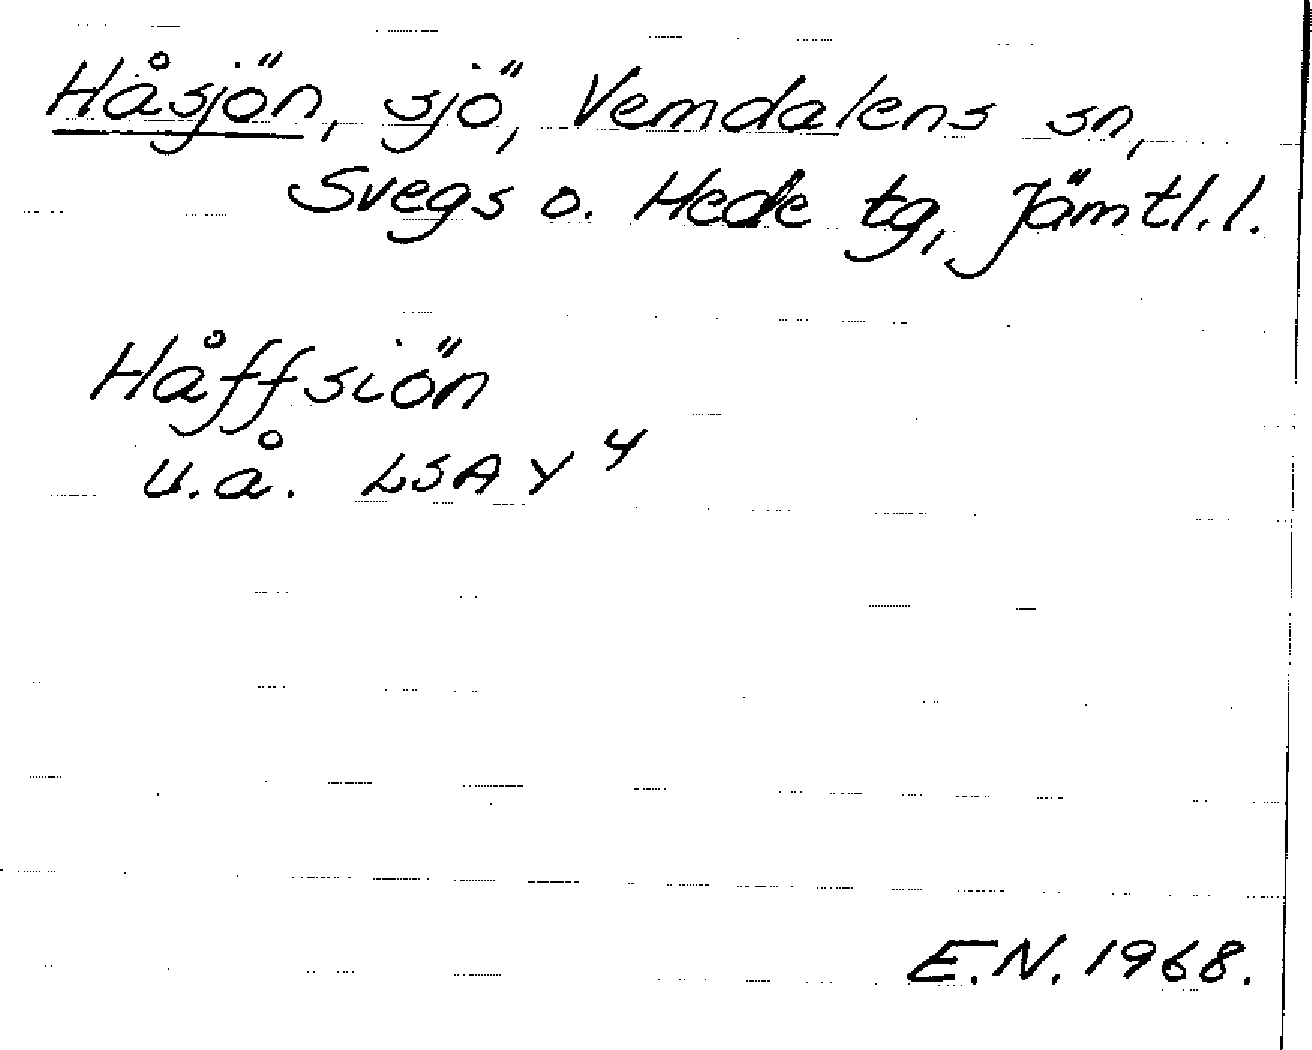 Håsjön, sjö, Vemdalens sn,
Svegs o. Hede tg, Jämtl. l.
Håffsiön
u.å. LSA Y 4
E.N. 1968.